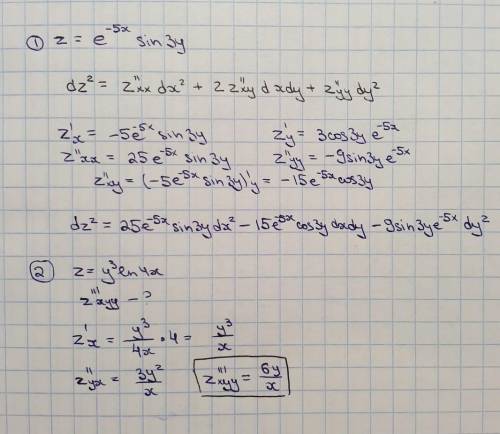 ① z = e^-5x sin3y
dz² = z''xx dx² + 2 z''xy dxdy + z''yy dy²
z'x = -5e^-5x sin3y z'y = 3cos3y e^-5x
z''xx = 25e^-5x sin3y z''yy = -9sin3y e^-5x
z''xy = (-5e^-5x sin3y)'y = -15e^-5x cos3y
dz² = 25e^-5x sin3y dx² - 15e^-5x cos3y dxdy - 9sin3y e^-5x dy²
② z = y³ ln4x
z'''xyy - ?
z'x = y³/4x • 4 = y³/x
z''yx = 3y²/x z'''xyy = 6y/x